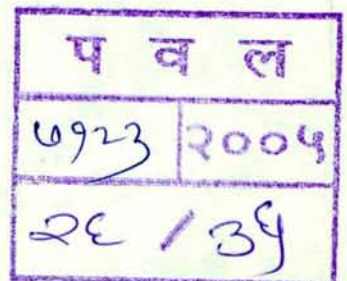 प व ल
७१२३ २००५
२६ / ३५